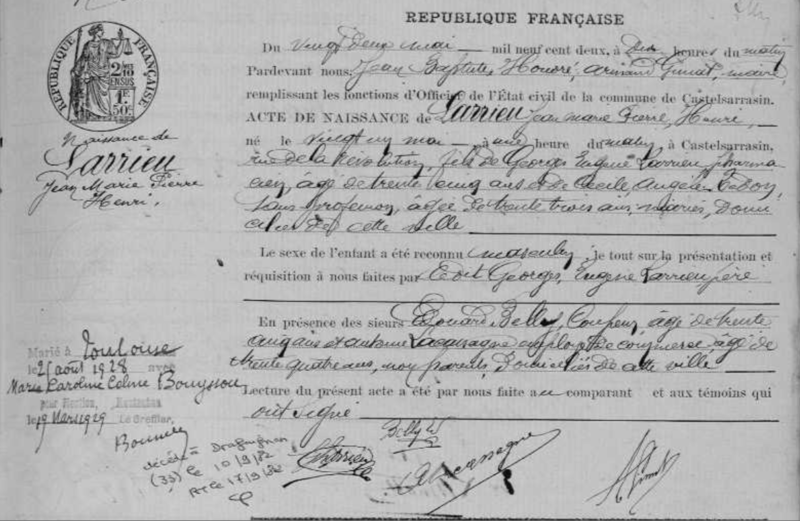 REPUBLIQUE FRANÇAISE
RÉPUBLIQUE FRANÇAISE
2/10 EN SUS
1F. 50c
Du vingt deux mai mil neuf cent deux, à heures du matin
Pardevant nous, Jean Baptiste Honoré Armand maire
remplissant les fonctions d'Officier de l'État civil de la commune de Castelsarrasin.
ACTE DE NAISSANCE DE Larrieu Jean Marie Pierre, Henri,
né le vingt un mai à une heure du matin, à Castelsarrasin,
rue de la Révolution, fils de Georges Eugène Larrieu pharma
cien, âgé de trente cinq ans et de Cécile Angèle
sans profession, âgée de trente trois ans, mariés, Domi
ciliés de cette ville
Le sexe de l'enfant a été reconnu masculin, le tout sur la présentation et
réquisition à nous faites par ledit Georges, Eugène Larrieu père
En présence des sieurs Edouard Belly, Coupeur, âgé de trente
cinq ans et Antoine Lacassagne employé de commerce âgé de
trente quatre ans, non parents, Domiciliés de cette ville
Lecture du présent acte a été par nous faite au comparant et aux témoins qui
ont signé
Naissance de
Larrieu
Jean Marie Pierre
Henri.
Marié à Toulouse
le 25 août 1928 avec
Marie Caroline Celine Bouyssou
le 19 Mars 1929 Le Greffier,
décédé à Draguignan
le 10/9/82
le 17/9/82
Belly
Larrieu
Lacassagne